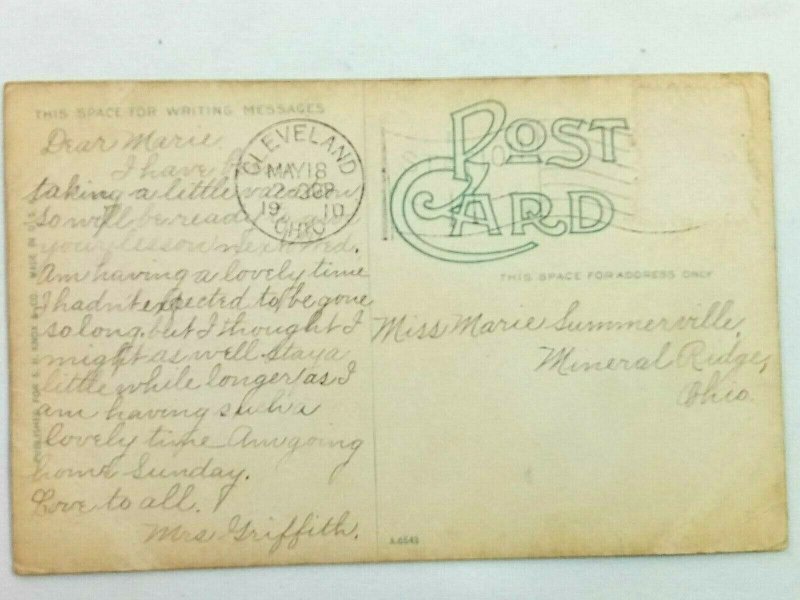 THIS SPACE FOR WRITING MESSAGES
Dear Marie
I have
taking a little vacation
so will be ready to
your lesson next Wed.
Am having a lovely time
I hadn't expected to be gone
so long. but I thought I
might as well stay a
little while longer as I
am having such a
lovely time Am going
home Sunday.
Love to all.
Mrs Griffith.
CLEVELAND
MAY 18
19 10
OHIO
POST
CARD
THIS SPACE FOR ADDRESS ONLY
Miss Marie Summerville,
Mineral Ridge,
Ohio.